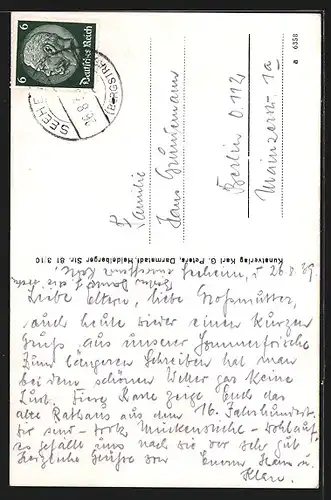 6 Deutsches Reich 6
SEEHEIM
(BERGSTR)
26.8
a 6358
Familie
Hans Grüntemann
Berlin O.112
Mainzerstr. 1a
Kunstverlag Karl G. Peters, Darmstadt, Heidelberger Str. 81 3/10
Seeheim, d 26.8.39.
Besten Dank f. die
eintreffende Karte.
Liebe Eltern, liebe Großmutter,
auch heute wieder einen kurzen
Gruß aus unserer Sommerfrische
Zum längeren Schreiben hat man
bei dem schönen Wetter gar keine
Lust. Diese Karte zeigt Euch das
alte Rathaus aus dem 16. Jahrhundert.
Wir sind - trotz Mückenstiche - wohlauf,
es gefällt uns nach wie vor sehr gut
Herzliche Grüße von Euerm Hans u.
Klara.